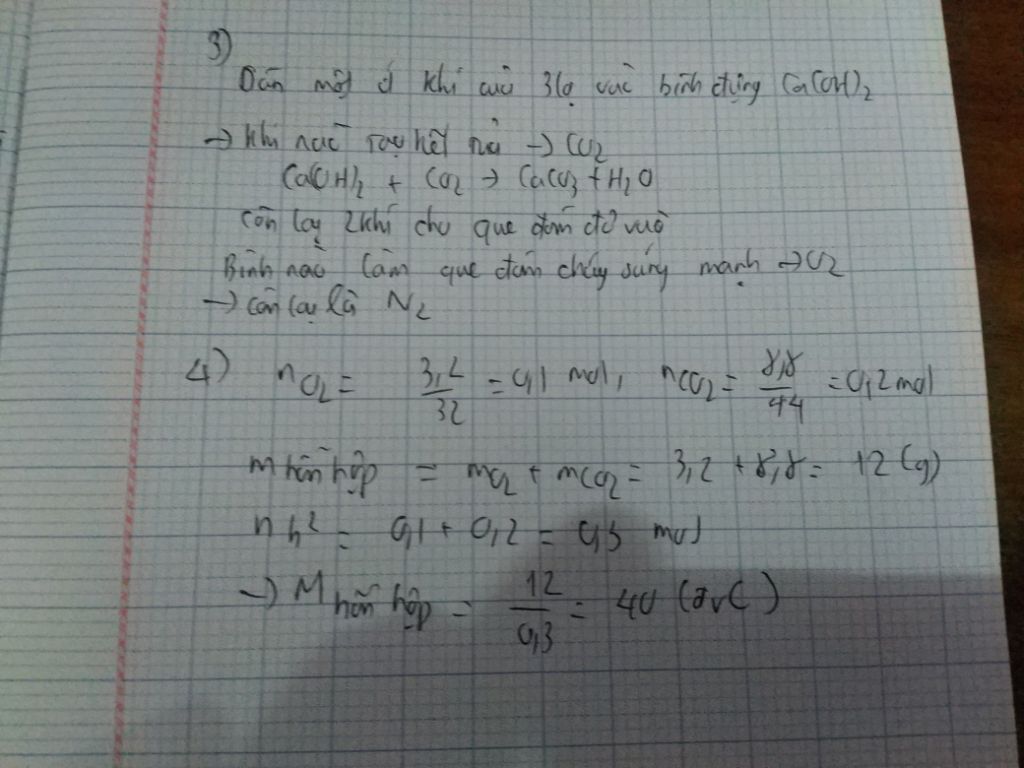 3)
Dẫn một ít khí của 3 lọ vào bình đựng Ca(OH)2
→ Khí nào tạo kết tủa → CO2
Ca(OH)2 + CO2 → CaCO3 + H2O
Còn lại 2 khí cho que đóm đỏ vào
Bình nào làm que đóm cháy sáng mạnh → O2
→ còn lại là N2
4) nO2 = 3,2/32 = 0,1 mol, nCO2 = 8,8/44 = 0,2 mol
m hỗn hợp = mO2 + mCO2 = 3,2 + 8,8 = 12 (g)
n h² = 0,1 + 0,2 = 0,3 mol
→ M hỗn hợp = 12/0,3 = 40 (đvC)